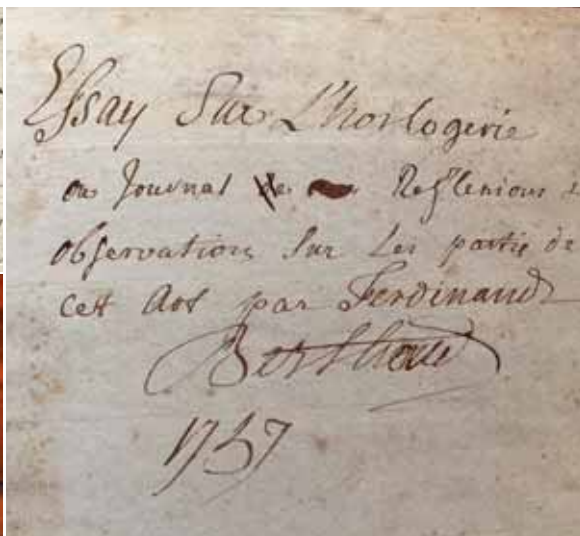 Essay Sur L'horlogerie
ou Journal de Reflexions &
observations sur Les partie de
cet Art par Ferdinand
Berthoud
1757